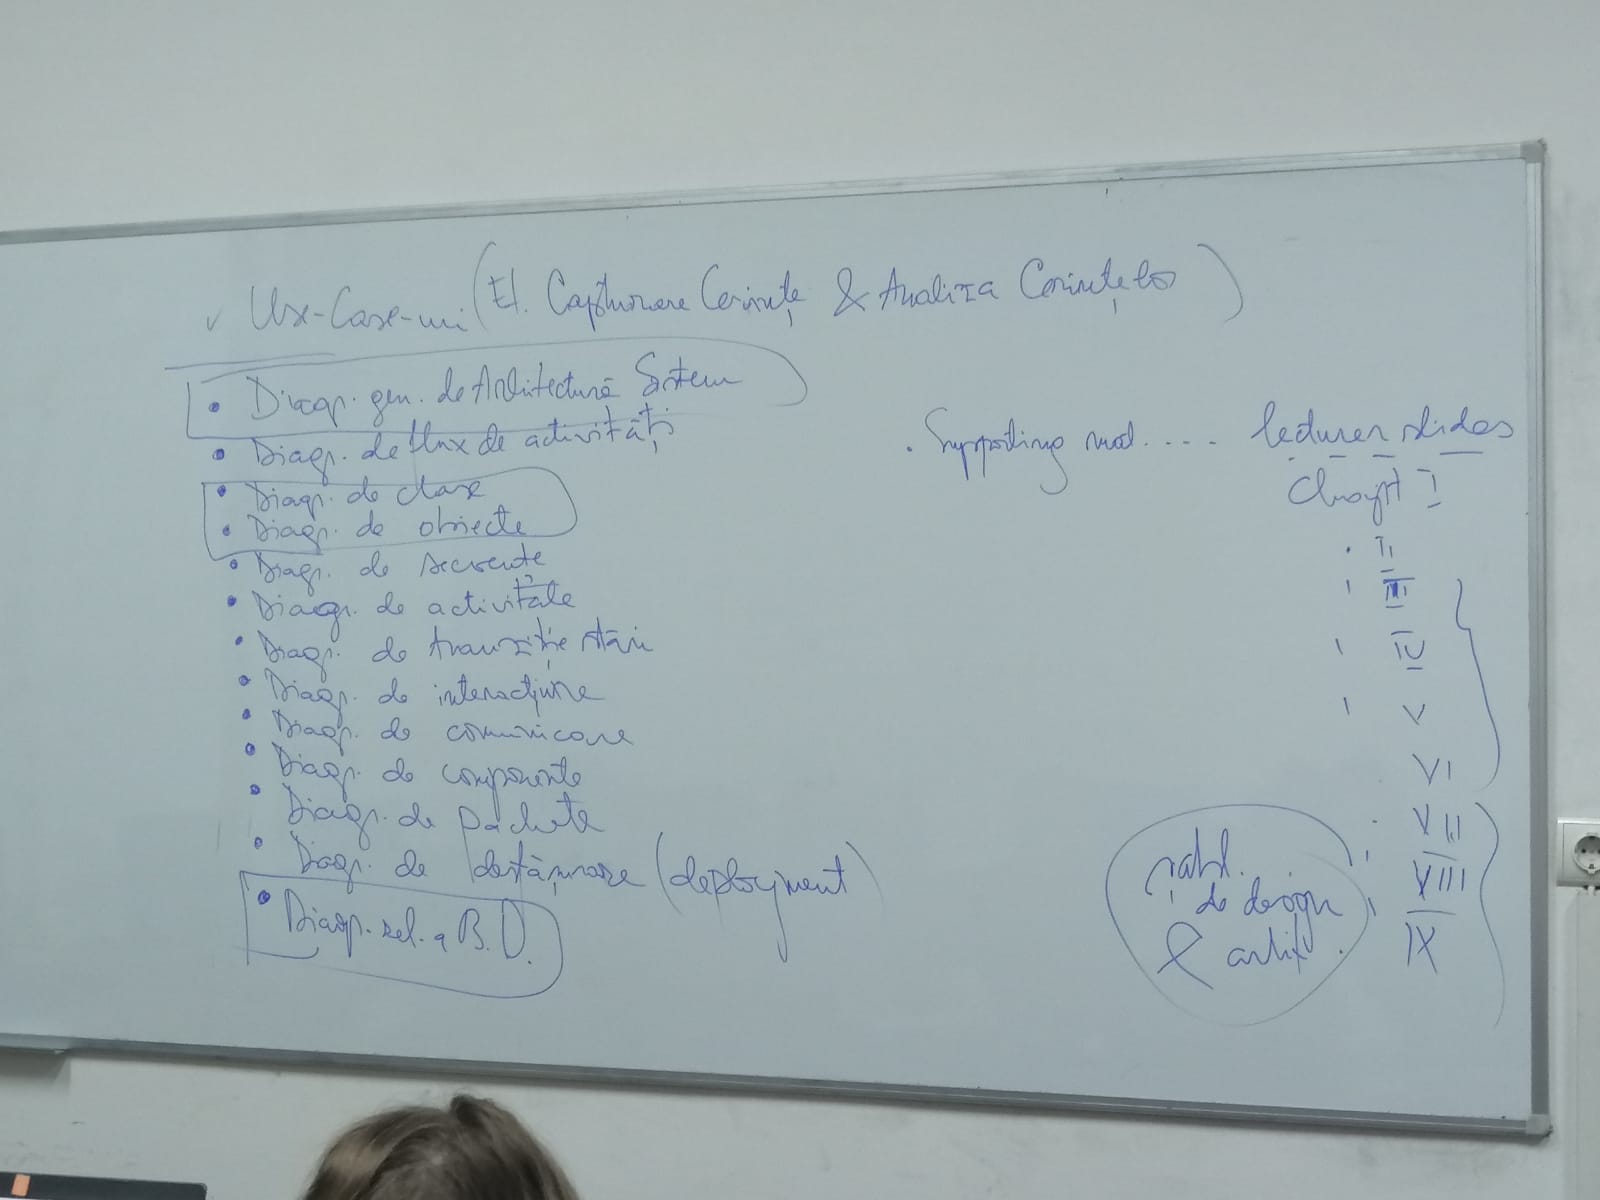 ✓ Use-Case-uri (Et. Capturare Cerințe & Analiza Cerințelor)
• Diagr. gen. de Arhitectură Sistem
• Diagr. de flux de activități
• Diagr. de clase
• Diagr. de obiecte
• Diagr. de secvente
• Diagr. de activitate
• Diagr. de tranziție stări
• Diagr. de interacțiune
• Diagr. de comunicare
• Diagr. de componente
• Diagr. de pachete
• Diagr. de desfășurare (deployment)
• Diagr. rel. a B.D.
• Supporting mat.... lecturer slides
Chapt I
• II
III
IV
V
VI
VII
VIII
IX
de design
&